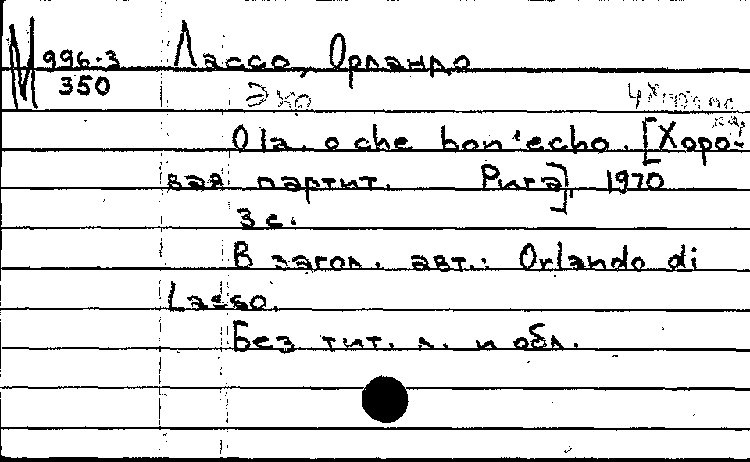 М 996-3
350
Лассо, Орландо
Эхо
Ola. o che bon'echo. [Хоро-
вая партит. Рига], 1970
3 с.
В загол. авт.: Orlando di
Lasso.
Без тит. л. и обл.